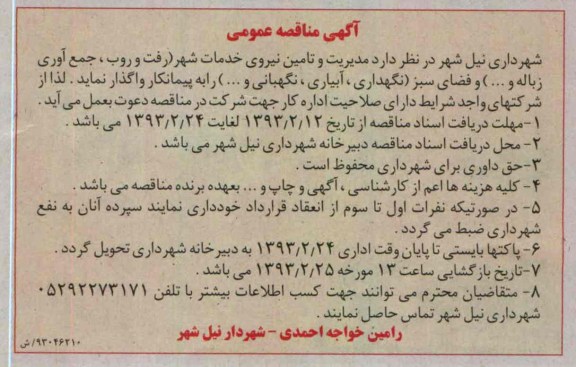 آگهی مناقصه عمومی
شهرداری نیل شهر در نظر دارد مدیریت و تامین نیروی خدمات شهر(رفت و روب ، جمع آوری
زباله و ... ) و فضای سبز (نگهداری ، آبیاری ، نگهبانی و ... ) رابه پیمانکار واگذار نماید . لذا از
شرکتهای واجد شرایط دارای صلاحیت اداره کار جهت شرکت در مناقصه دعوت بعمل می آید .
۱-مهلت دریافت اسناد مناقصه از تاریخ ۱۳۹۳/۲/۱۲ لغایت ۱۳۹۳/۲/۲۴ می باشد .
۲- محل دریافت اسناد مناقصه دبیرخانه شهرداری نیل شهر می باشد .
۳-حق داوری برای شهرداری محفوظ است .
۴- کلیه هزینه ها اعم از کارشناسی ، آگهی و چاپ و ... بعهده برنده مناقصه می باشد .
۵- در صورتیکه نفرات اول تا سوم از انعقاد قرارداد خودداری نمایند سپرده آنان به نفع
شهرداری ضبط می گردد .
۶- پاکتها بایستی تا پایان وقت اداری ۱۳۹۳/۲/۲۴ به دبیرخانه شهرداری تحویل گردد .
۷-تاریخ بازگشایی ساعت ۱۳ مورخه ۱۳۹۳/۲/۲۵ می باشد .
۸- متقاضیان محترم می توانند جهت کسب اطلاعات بیشتر با تلفن ۰۵۲۹۲۲۷۳۱۷۱
شهرداری نیل شهر تماس حاصل نمایند .
رامین خواجه احمدی - شهردار نیل شهر
۹۳۰۴۶۲۱۰/ش